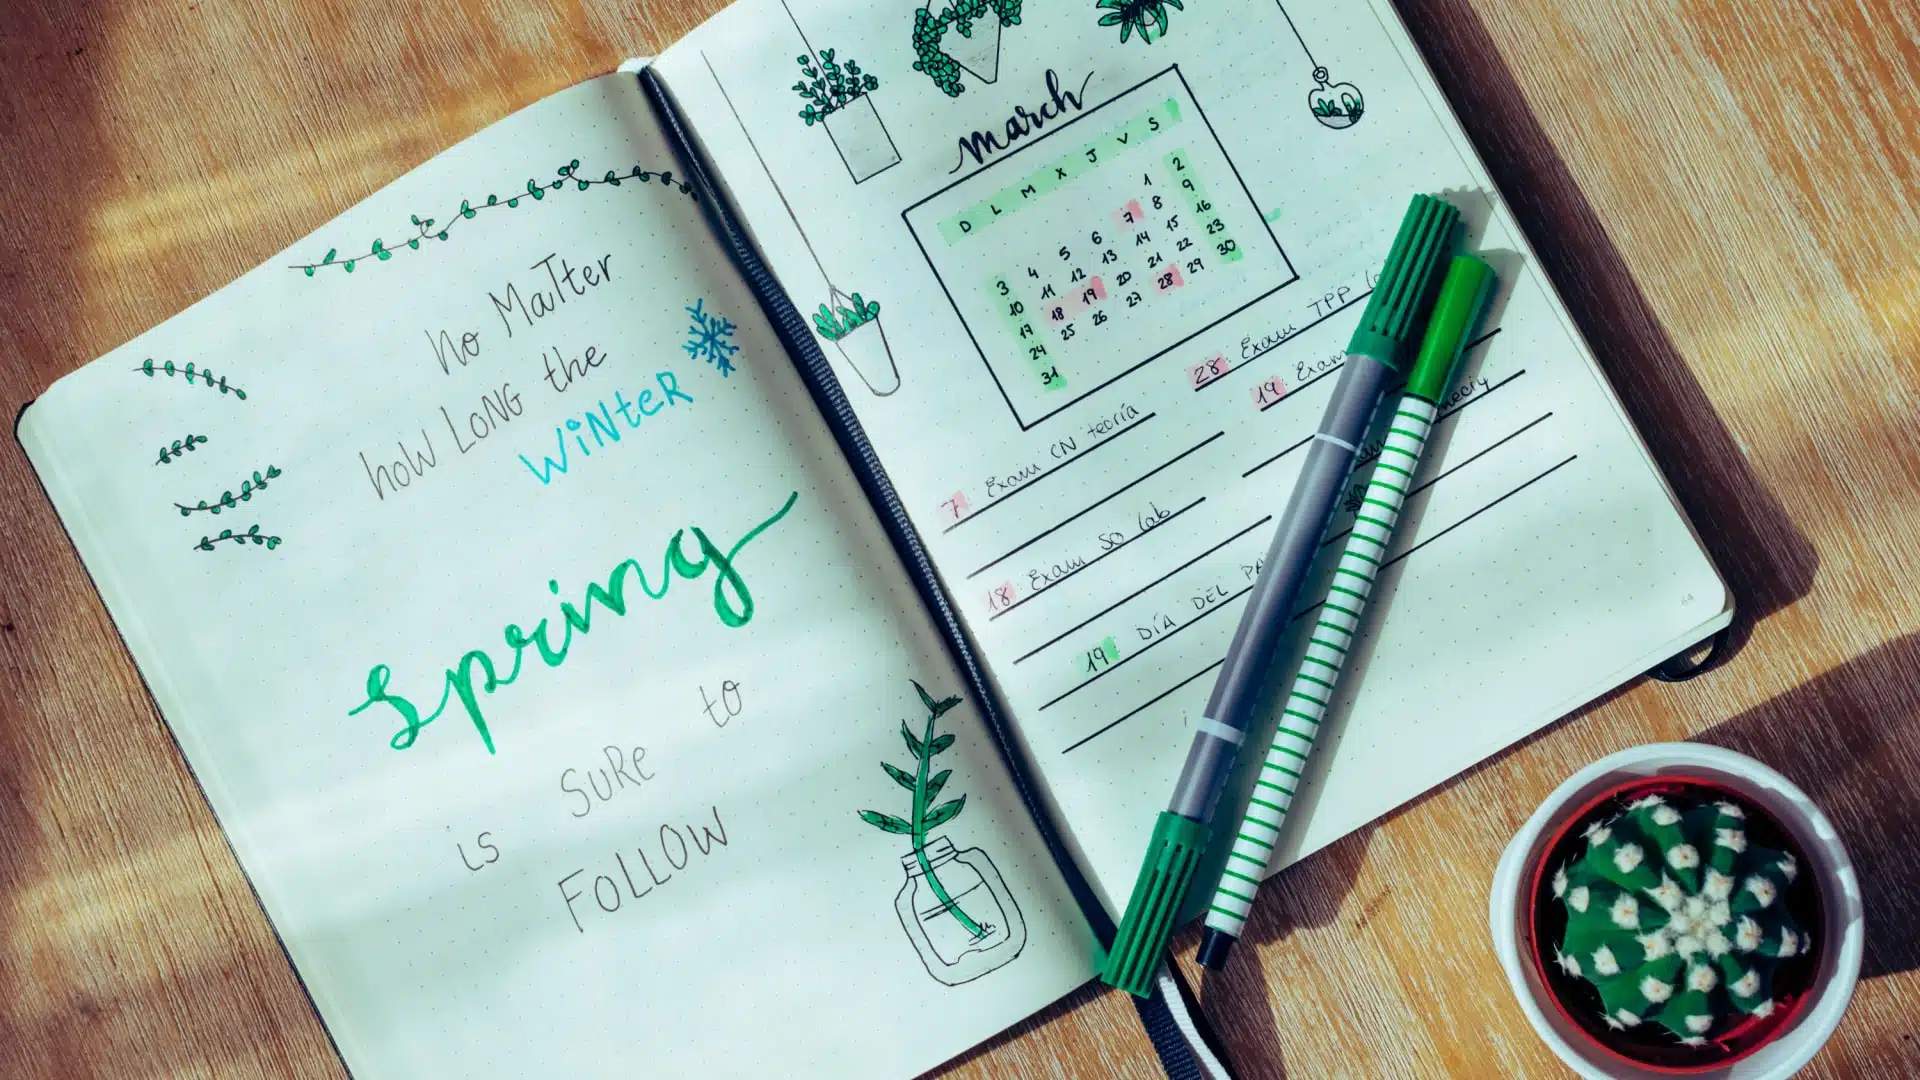 No MaTTer
how LoNG the
WiNteR
Spring
is SuRe to
FoLLOW
march
D L M X J V S
1 2
3 4 5 6 7 8 9
10 11 12 13 14 15 16
17 18 19 20 21 22 23
24 25 26 27 28 29 30
31
7 Exam CN teoría
18 Exam SO lab
19 DÍA DEL
28 Exam TPP
19 Exam
64